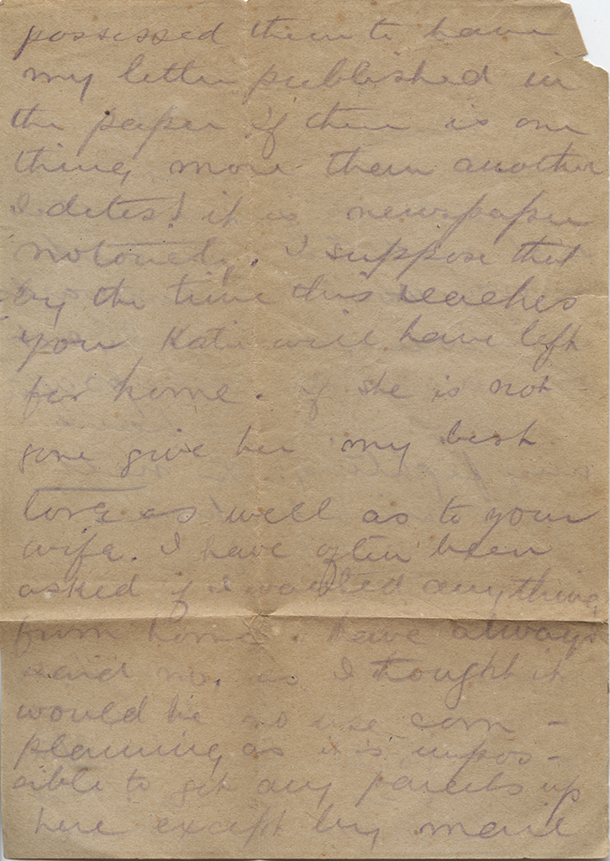 possessed them to have
my letter published in
the paper if there is one
thing more them another
I detest it is newspaper
notoriety. I suppose that
by the time this reaches
you Katie will have left
for home. if she is not
gone give her my best
love as well as to your
wife. I have often been
asked if I wanted anything
from home. have always
said no, as I thought it
would be no use com-
plaining as it is impos-
sible to get any parcels up
here except by mail